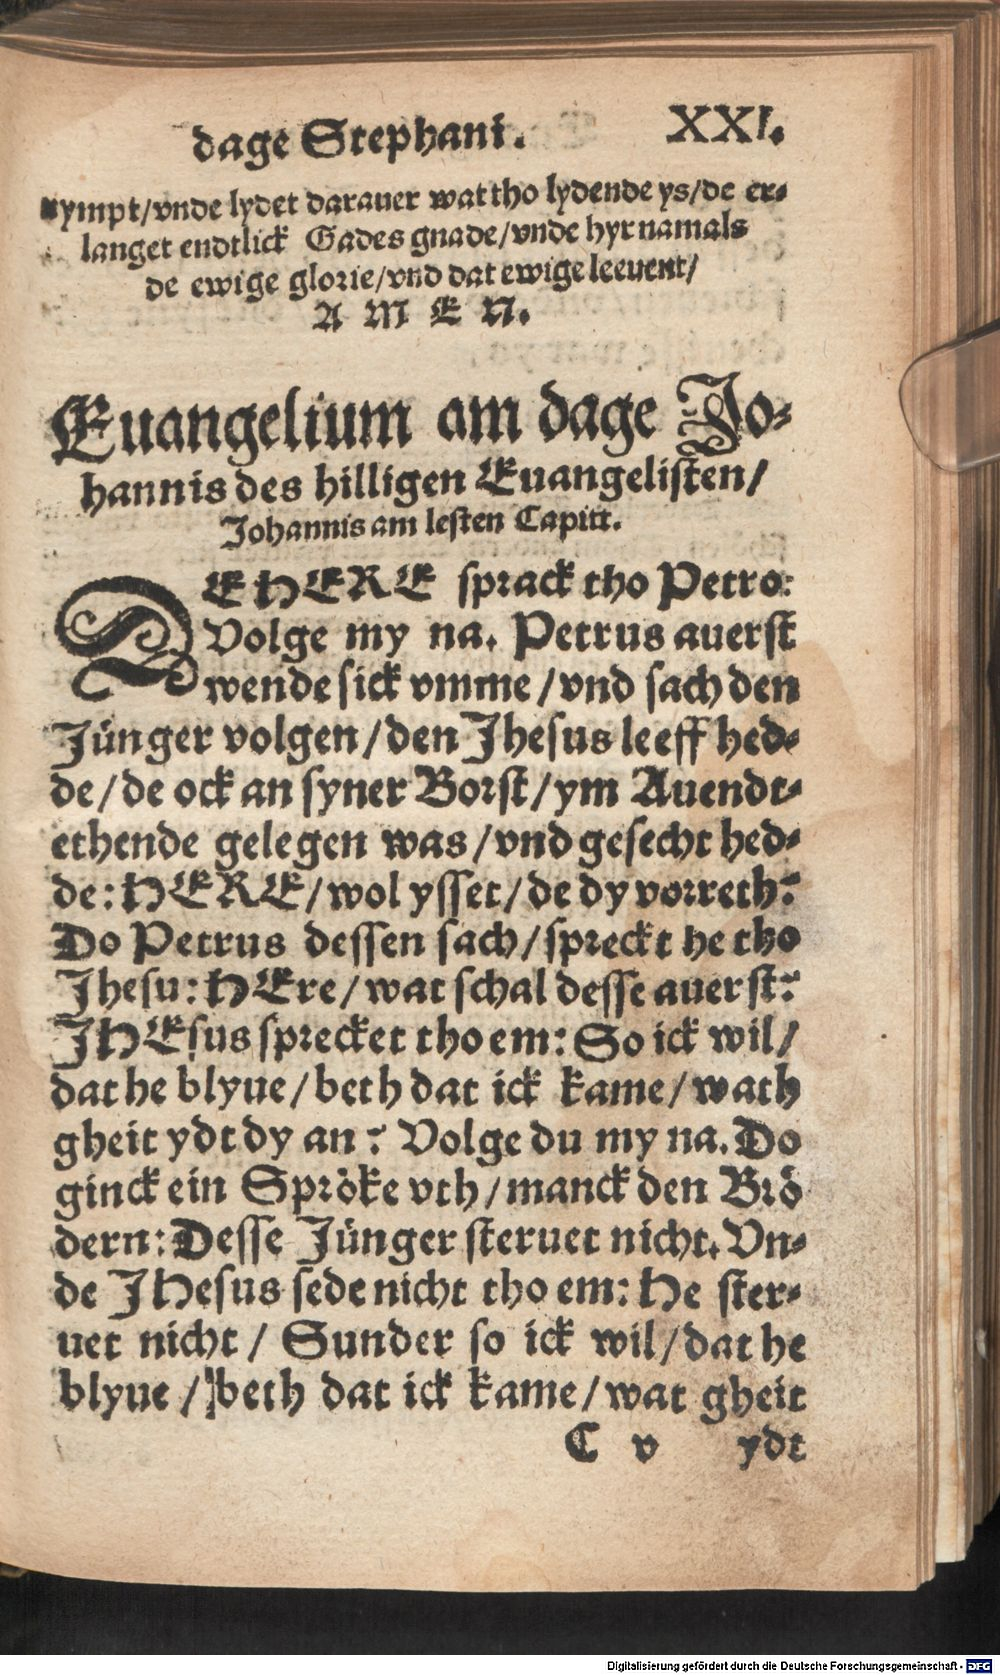 dage Stephani. XXI.
nympt/vnde lydet darauer wat tho lydende ys/de er-
langet endtlick Gades gnade/vnde hyr namals
de ewige glorie/vnd dat ewige leeuent/
A M E N.
Euangelium am dage Jo-
hannis des hilligen Euangelisten/
Johannis am lesten Capitt.
DE HERE sprack tho Petro:
Volge my na. Petrus auerst
wende sick vmme/vnd sach den
Jünger volgen/den Jhesus leeff hed-
de/de ock an syner Borst/ym Auendt-
ethende gelegen was/vnd gesecht hed-
de: HERE/wol ysset/de dy vorreth?
Do Petrus dessen sach/spreckt he tho
Jhesu: HEre/wat schal desse auerst?
JHEsus sprecket tho em: So ick wil/
dat he blyue/beth dat ick kame/wath
gheit ydt dy an? Volge du my na. Do
ginck ein Spröke vth/manck den Brö
dern: Desse Jünger steruet nicht. Vn-
de JHesus sede nicht tho em: He ster-
uet nicht/ Sunder so ick wil/dat he
blyue/beth dat ick kame/wat gheit
C v ydt
Digitalisierung gefördert durch die Deutsche Forschungsgemeinschaft - DFG